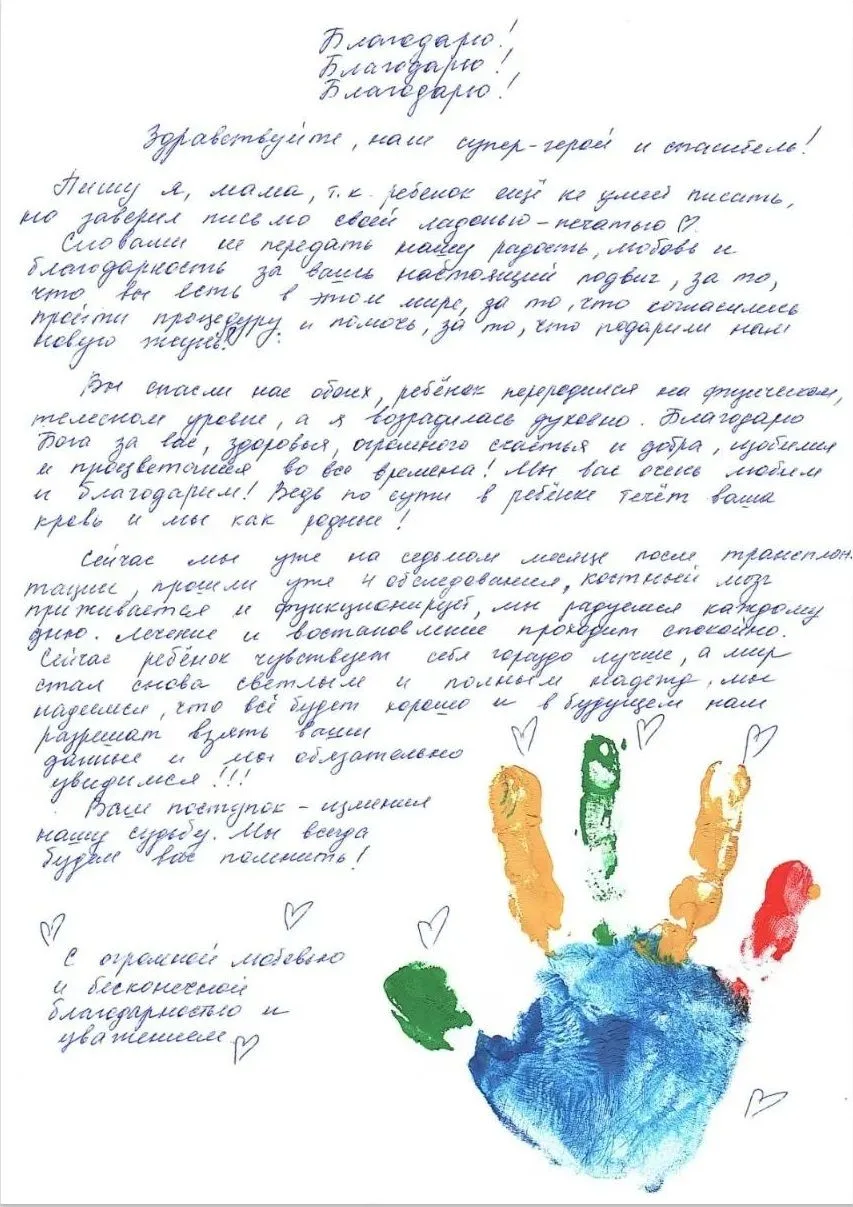 Благодарю!
Благодарю!
Благодарю!
Здравствуйте, наш супер-герой и спаситель!
Пишу я, мама, т.к. ребенок ещё не умеет писать,
но заверил письмо своей ладонью-печатью ♡.
Словами не передать нашу радость, любовь и
благодарность за ваш настоящий подвиг, за то,
что вы есть в этом мире, за то, что согласились
пройти процедуру и помочь, за то, что подарили нам
новую жизнь!
Вы спасли нас обоих, ребёнок переродился на физическом,
телесном уровне, а я возрадилась духовно. Благодарю
Бога за вас, здоровья, огромного счастья и добра, изобилия
и процветания во все времена! Мы вас очень любим
и благодарим! Ведь по сути в ребёнке течёт ваша
кровь и мы как родные!
Сейчас мы уже на седьмом месяце после транспlан-
тации, прошли уже 4 обследования, костный мозг
приживается и функционирует, мы радуемся каждому
дню. Лечение и востановление проходит спокойно.
Сейчас ребёнок чувствует себя гораздо лучше, а мир
стал снова светлым и полным надежд, мы
надеемся, что всё будет хорошо и в будущем нам
разрешат взять ваши
данные и мы обязательно
увидимся!!!
Ваш поступок - изменил
нашу судьбу. Мы всегда
будем вас помнить!
С огромной любовью
и бесконечной
благодарностью и
уважением